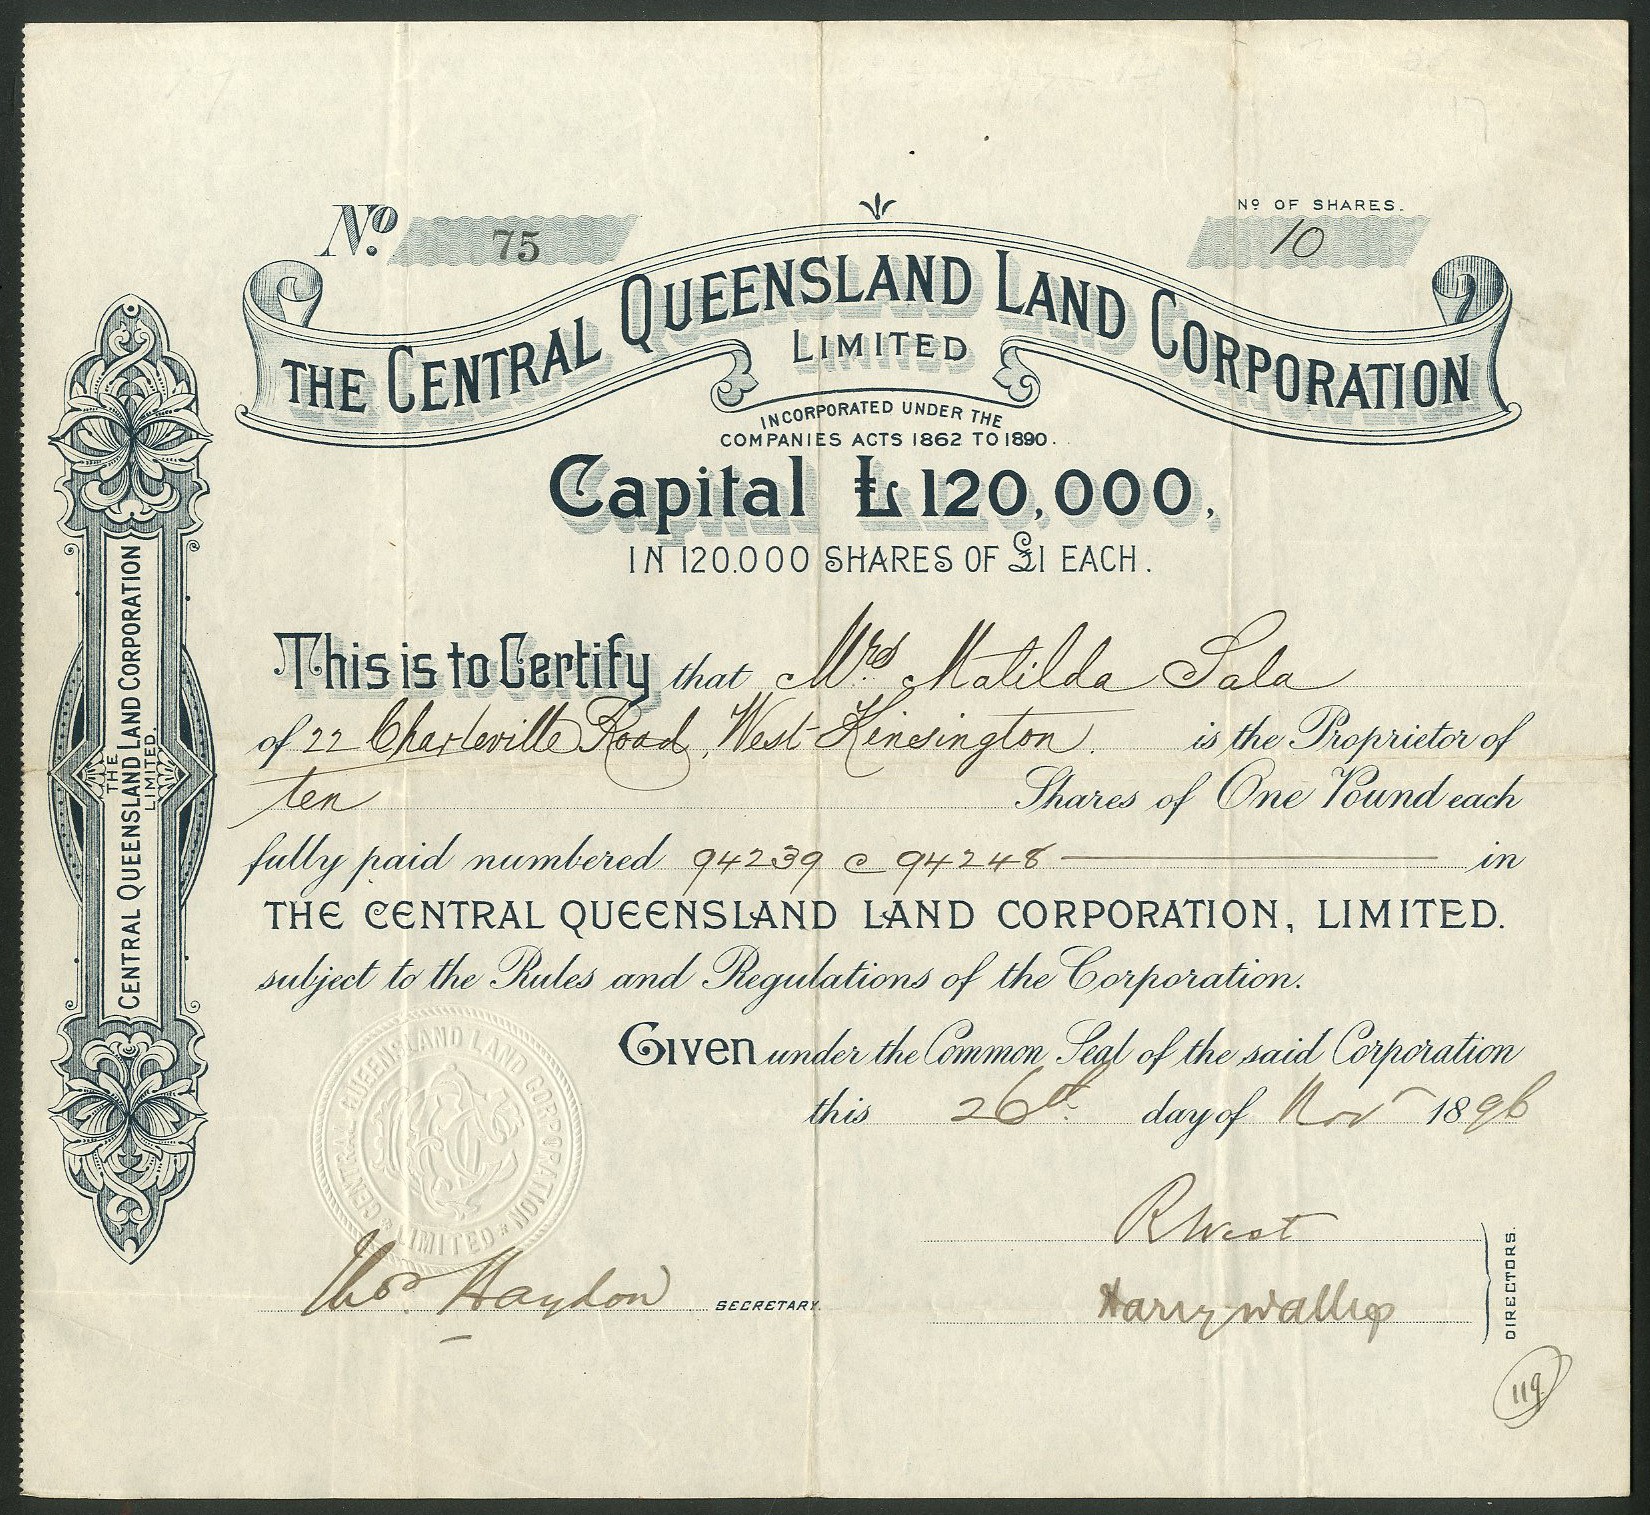 No. 75
No OF SHARES.
10
THE CENTRAL QUEENSLAND LAND CORPORATION
LIMITED
INCORPORATED UNDER THE
COMPANIES ACTS 1862 TO 1890.
Capital £120,000,
IN 120.000 SHARES OF £1 EACH.
This is to Certify that Mrs Matilda Sala
of 22 Charleville Road, West Kinsington. is the Proprietor of
ten Shares of One Pound each
fully paid numbered 94239 @ 94248 in
THE CENTRAL QUEENSLAND LAND CORPORATION, LIMITED.
subject to the Rules and Regulations of the Corporation.
Given under the Common Seal of the said Corporation
this 26th day of Nov 1896
R West
Harry Wallop
DIRECTORS.
Thos. Haydon SECRETARY.
119
THE
CENTRAL QUEENSLAND LAND CORPORATION
LIMITED.
CENTRAL QUEENSLAND LAND CORPORATION
LIMITED